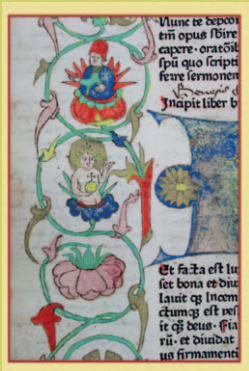 Nunc te depcor
tim opus stūire
capere · oratōib
spū quo scripti
ferre sermonem
Incipit liber b
Et facta est lu
set bona et diui
lauit qꝫ Incem
ctumqꝫ est ves
it qꝫ deus · Fia
rū · et diuidat
us firmamenti